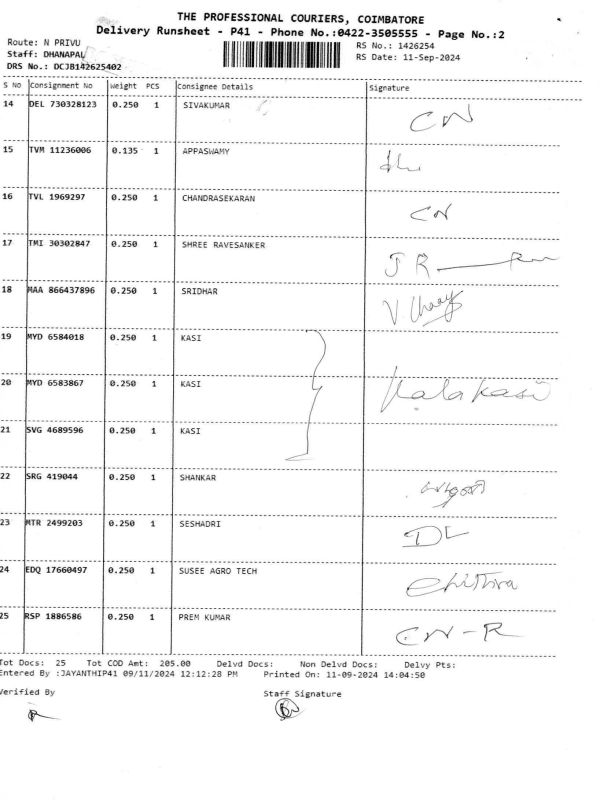 THE PROFESSIONAL COURIERS, COIMBATORE
Delivery Runsheet - P41 - Phone No.:0422-3505555 - Page No.:2
Route: N PRIVU RS No.: 1426254
Staff: DHANAPAL RS Date: 11-Sep-2024
DRS No.: DCJB142625402
S No Consignment No Weight PCS Consignee Details Signature
14 DEL 730328123 0.250 1 SIVAKUMAR CN
15 TVM 11236006 0.135 1 APPASWAMY
16 TVL 1969297 0.250 1 CHANDRASEKARAN CN
17 TMI 30302847 0.250 1 SHREE RAVESANKER
18 MAA 866437896 0.250 1 SRIDHAR
19 MYD 6584018 0.250 1 KASI
20 MYD 6583867 0.250 1 KASI Kalakasi
21 SVG 4689596 0.250 1 KASI
22 SRG 419044 0.250 1 SHANKAR
23 MTR 2499203 0.250 1 SESHADRI DL
24 EDQ 17660497 0.250 1 SUSEE AGRO TECH Chithra
25 RSP 1886586 0.250 1 PREM KUMAR CN-R
Tot Docs: 25 Tot COD Amt: 205.00 Delvd Docs: Non Delvd Docs: Delvy Pts:
Entered By :JAYANTHIP41 09/11/2024 12:12:28 PM Printed On: 11-09-2024 14:04:50
Verified By Staff Signature